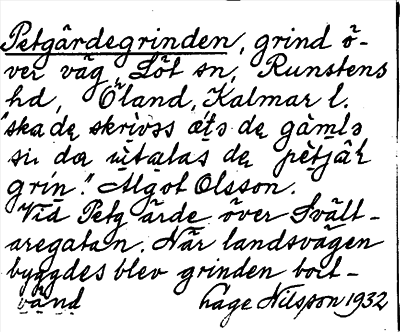 Petgärdegrinden, grind ö-
ver väg, Löt sn, Runstens
hd, Öland, Kalmar l.
"ska de skrivss æte de gamlə
su da utalas de petjär
grin." Algot Olsson.
Vid Petgärde över Svält-
aregatan. När landsvägen
byggdes blev grinden bort-
vänd Åge Nilsson 1932